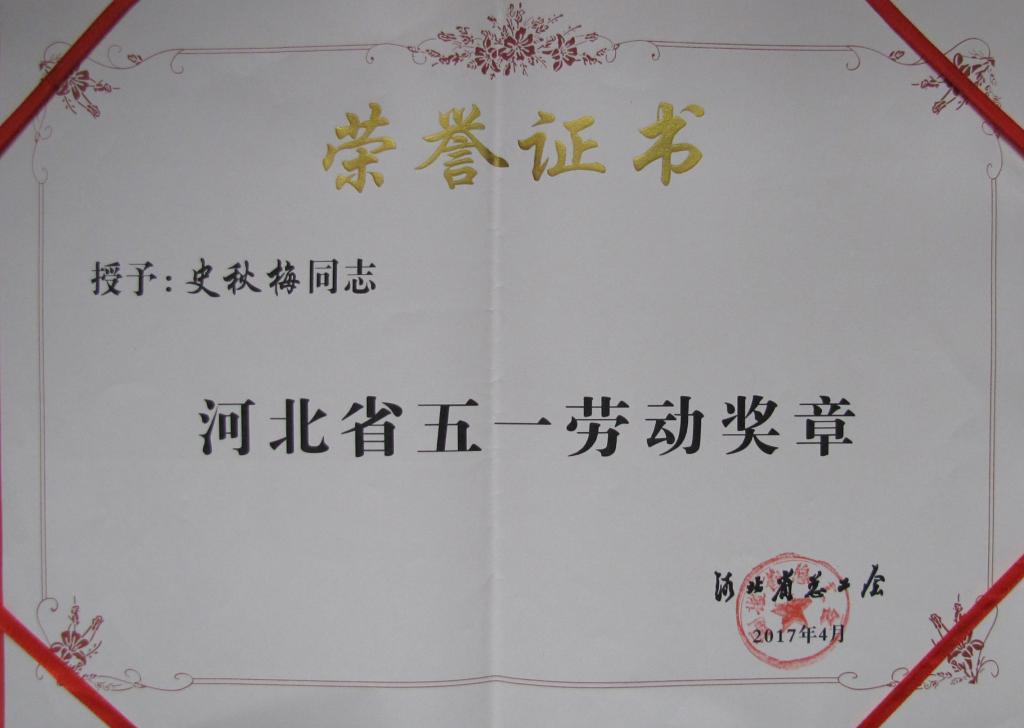 荣誉证书
授予:史秋梅同志
河北省五一劳动奖章
河北省总工会
2017年4月